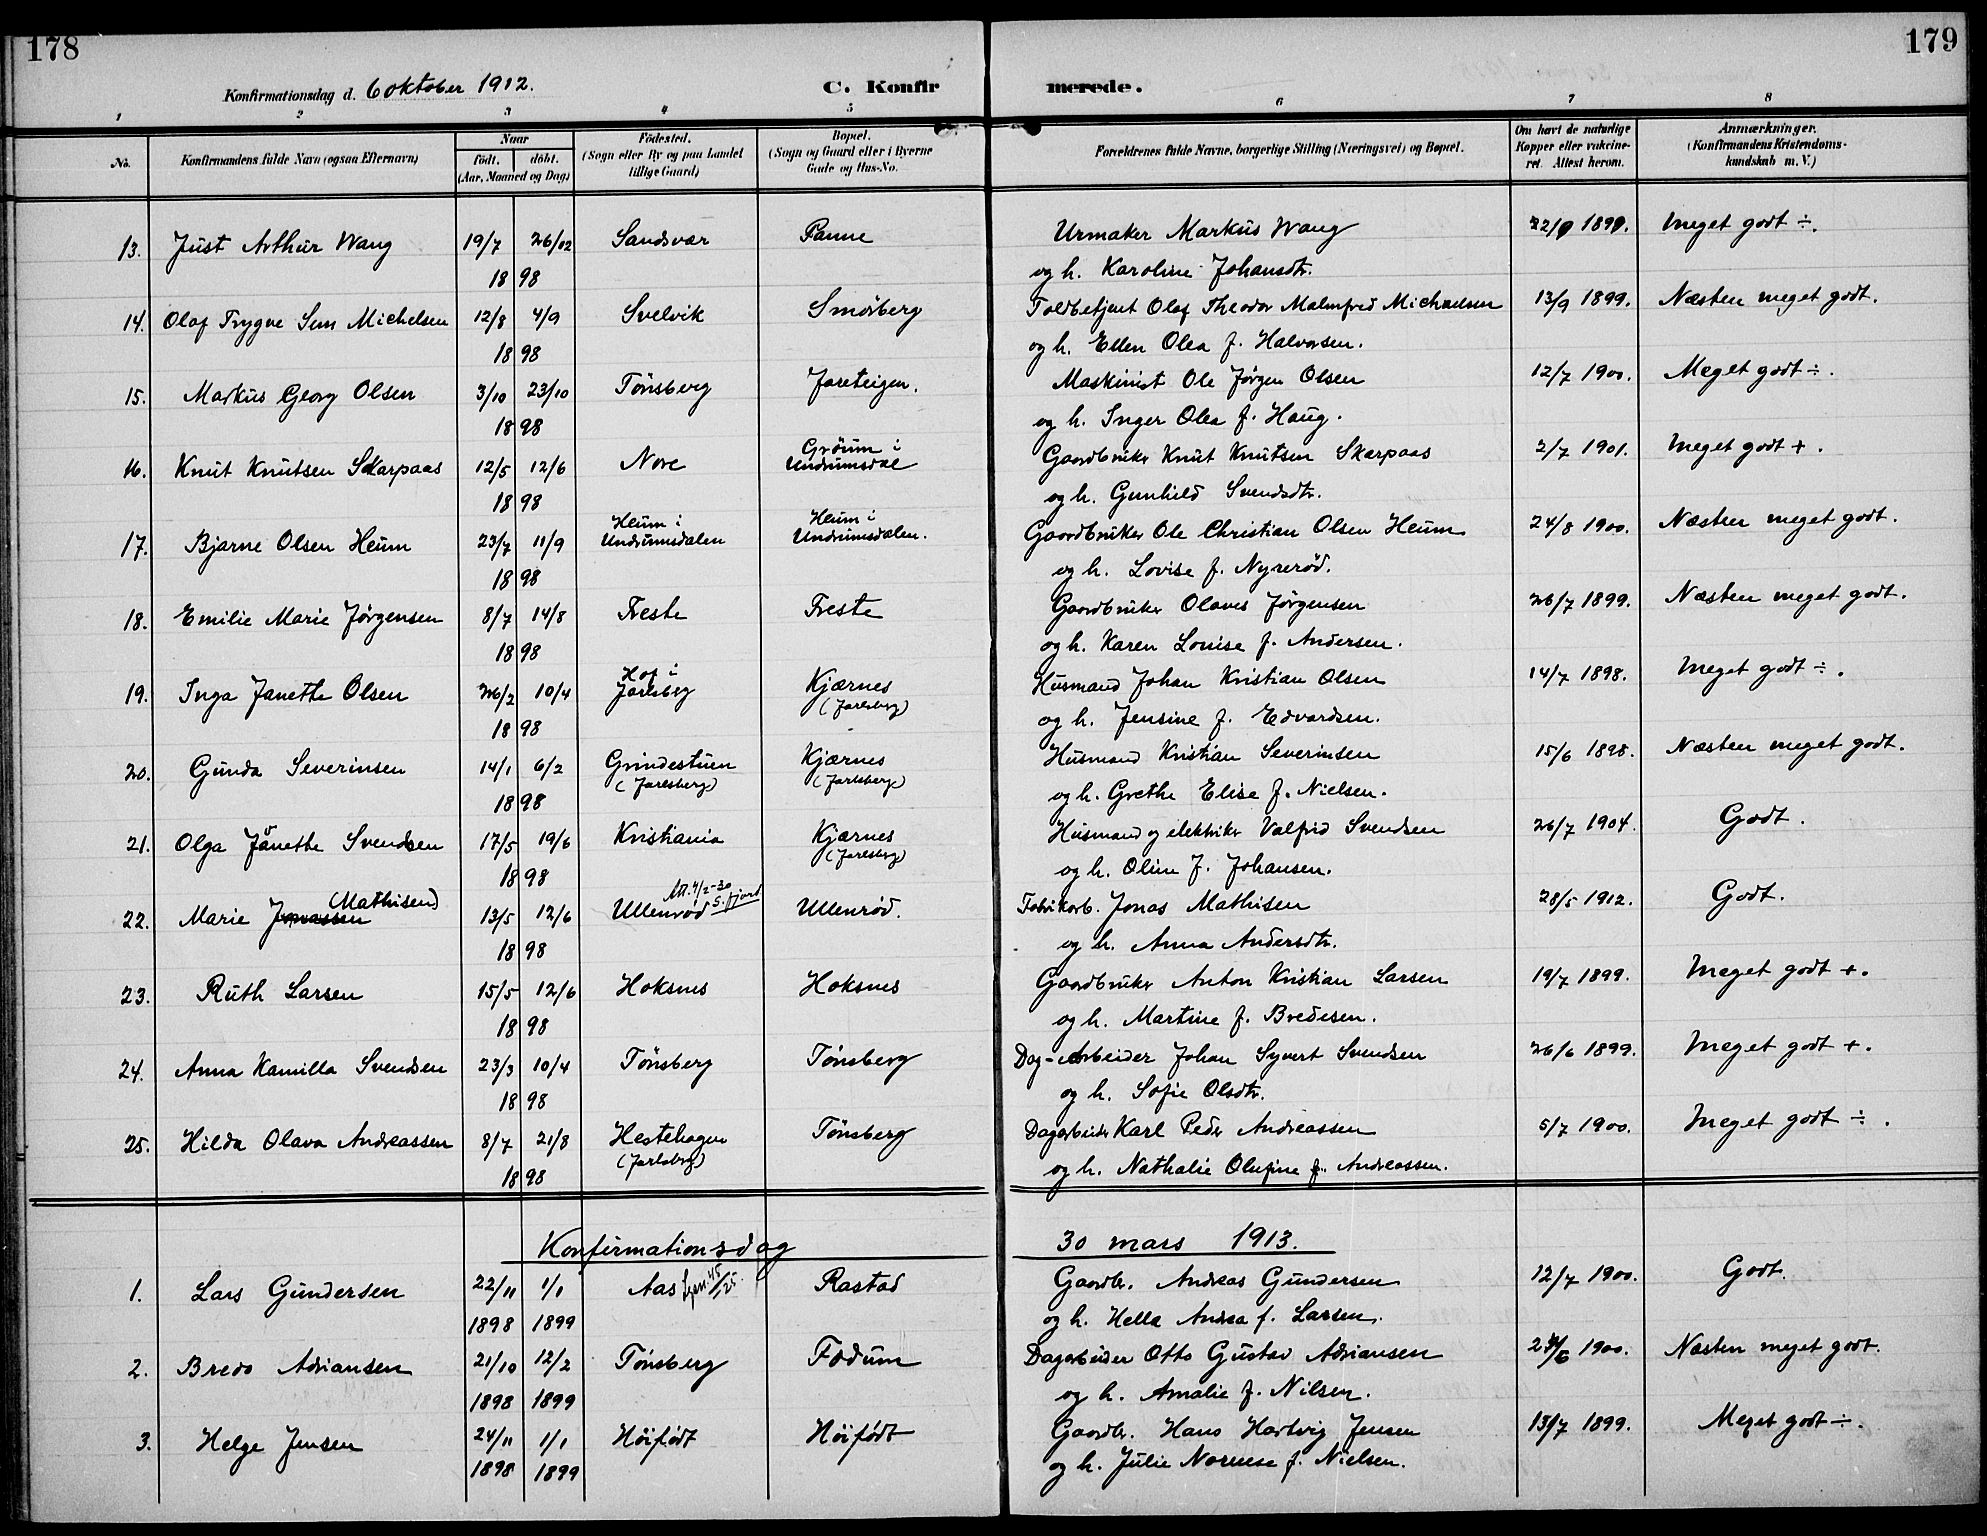 178
179
Konfirmationsdag d. 6 oktober 1912.
C. Konfir
merede.
1 2 3 4 5 6 7 8
No.
Konfirmandens fulde Navn (ogsaa Efternavn)
Naar
födt. döbt.
(Aar, Maaned og Dag)
Födested.
(Sogn eller By og paa Landet
tillige Gaard)
Bopæl.
(Sogn og Gaard eller i Byerne
Gade og Hus-No.
Forældrenes fulde Navne, borgerlige Stilling (Næringsvei) og Bopæl.
Om havt de naturlige
Kopper eller vakcine-
ret. Attest herom.
Anmærkninger.
(Konfirmandens Kristendoms-
kundskab m. V.)
13. Just Arthur Wang 19/7 26/02 Sandsvær Ramne Urmaker Markus Wang 22/9 1899. Meget godt ÷.
1898 og h. Karoline Johansdtr.
14. Olaf Trygve Sem Michelsen 12/8 4/9 Svelvik Smörberg Toldbetjent Olaf Theodor Malmfred Michaelsen 13/9 1899. Næsten meget godt.
1898 og h. Ellen Olea f. Halvorsen.
15. Markus Georg Olsen 3/10 23/10 Tönsberg Jareteigen. Maskinist Ole Jörgen Olsen 12/7 1900. Meget godt ÷.
1898 og h. Inger Olea f. Haug.
16. Knut Knutsen Skarpaas 12/5 12/6 Nore Gröum i Undrumsdal Gaardbruker Knut Knutsen Skarpaas 2/7 1901. Meget godt +.
1898 og h. Gunhild Svendsdtr.
17. Bjarne Olsen Heum 23/7 11/9 Heum i Undrumsdalen Heum i Undrumsdalen. Gaardbruker Ole Christian Olsen Heum 24/8 1900. Næsten meget godt.
1898 og h. Lovise f. Nyreröd.
18. Emilie Marie Jörgensen 8/7 14/8 Freste Freste Gaardbruker Olaves Jörgensen 26/7 1899. Næsten meget godt.
1898 og h. Karen Louise f. Andersen.
19. Inga Janette Olsen 26/2 10/4 Hof i Jarlsberg Kjærnes (Jarlsberg) Husmand Johan Kristian Olsen 14/7 1898. Meget godt ÷.
1898 og h. Jensine f. Edvardsen.
20. Gunda Severinsen 14/1 6/2 Grindestuen (Jarlsberg) Kjærnes (Jarlsberg) Husmand Kristian Severinsen 15/6 1898. Næsten meget godt.
1898 og h. Grethe Elise f. Nielsen.
21. Olga Janette Svendsen 17/5 19/6 Kristiania Kjærnes (Jarlsberg) Husmand og elektriker Valfrid Svendsen 26/7 1904. Godt.
1898 og h. Oline f. Johansen.
22. Marie Jonassen Mathisen) 13/5 12/6 Ullenröd Att. 4/2-30 S.fjord Ullenröd. Fabrikarb. Jonas Mathisen 28/5 1912. Godt.
1898 og h. Anna Andersdtr.
23. Ruth Larsen 15/5 12/6 Hoksnes Hoksnes Gaardbruker Anton Kristian Larsen 19/7 1899. Meget godt +.
1898 og h. Martine f. Bredesen.
24. Anna Kamilla Svendsen 23/3 10/4 Tönsberg Tönsberg Dag-arbeider Johan Syvert Svendsen 26/6 1899. Meget godt +.
1898 og h. Sofie Olsdtr.
25. Hilda Olava Andreassen 8/7 21/8 Hestehagen (Jarlsberg) Tönsberg Dagarbeider Karl Peder Andreassen 5/7 1900. Meget godt ÷.
1898 og h. Nathalie Olufine f. Andreassen.
Konfirmationsdag 30 mars 1913.
1. Lars Gundersen 22/11 1/1 Aas Rastad Gaardbr. Andreas Gundersen 12/7 1900. Godt.
1898 1899 og h. Hella Andrea f. Larsen.
2. Bredo Adriansen 21/10 12/2 Tönsberg Fodum Dagarbeider Otto Gustav Adriansen 1900. Næsten meget godt.
1898 1899 og h. Amalie f. Nilsen.
3. Helge Jensen 24/11 1/1 Höifödt Höifödt Gaardbr. Hans Hartvig Jensen 13/7 1899. Meget godt ÷.
1898 1899 og h. Julie f. Nielsen.